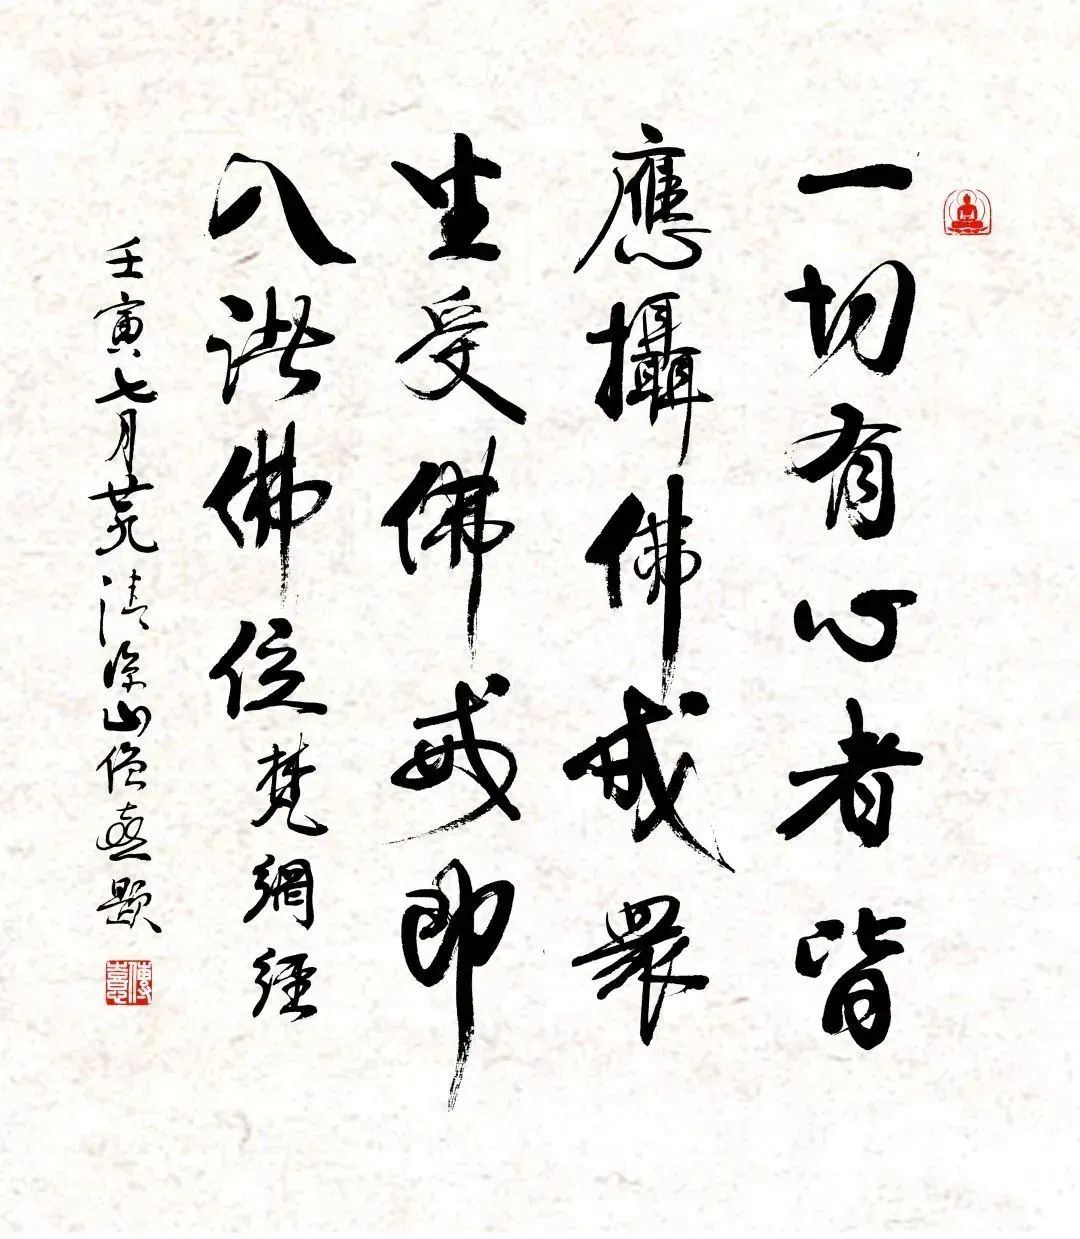 一切有心者皆
應攝佛戒衆
生受佛戒即
入諸佛位梵網經
壬寅七月清凉山僧題